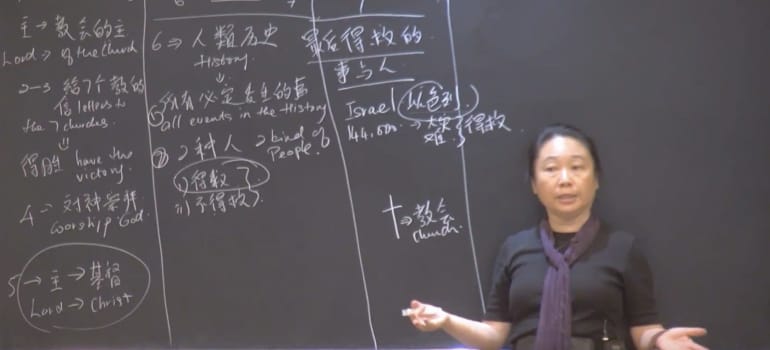 主 → 教会的主
Lord → of the Church
2-3 给7个教的
信 letters to
the 7 churches.
得胜 have the
victory.
4 → 对神崇拜
worship God
5 → 主 → 基督
Lord → Christ
6 → 人類历史
History
① 所有必定发生的事
all events in the History
② 2种人 2 kind of
People.
i) 得救了
ii) 不得救
最后得救的
事与人
Israel (以色列)
144,000 → 大災难了得救
† → 教会
Church.